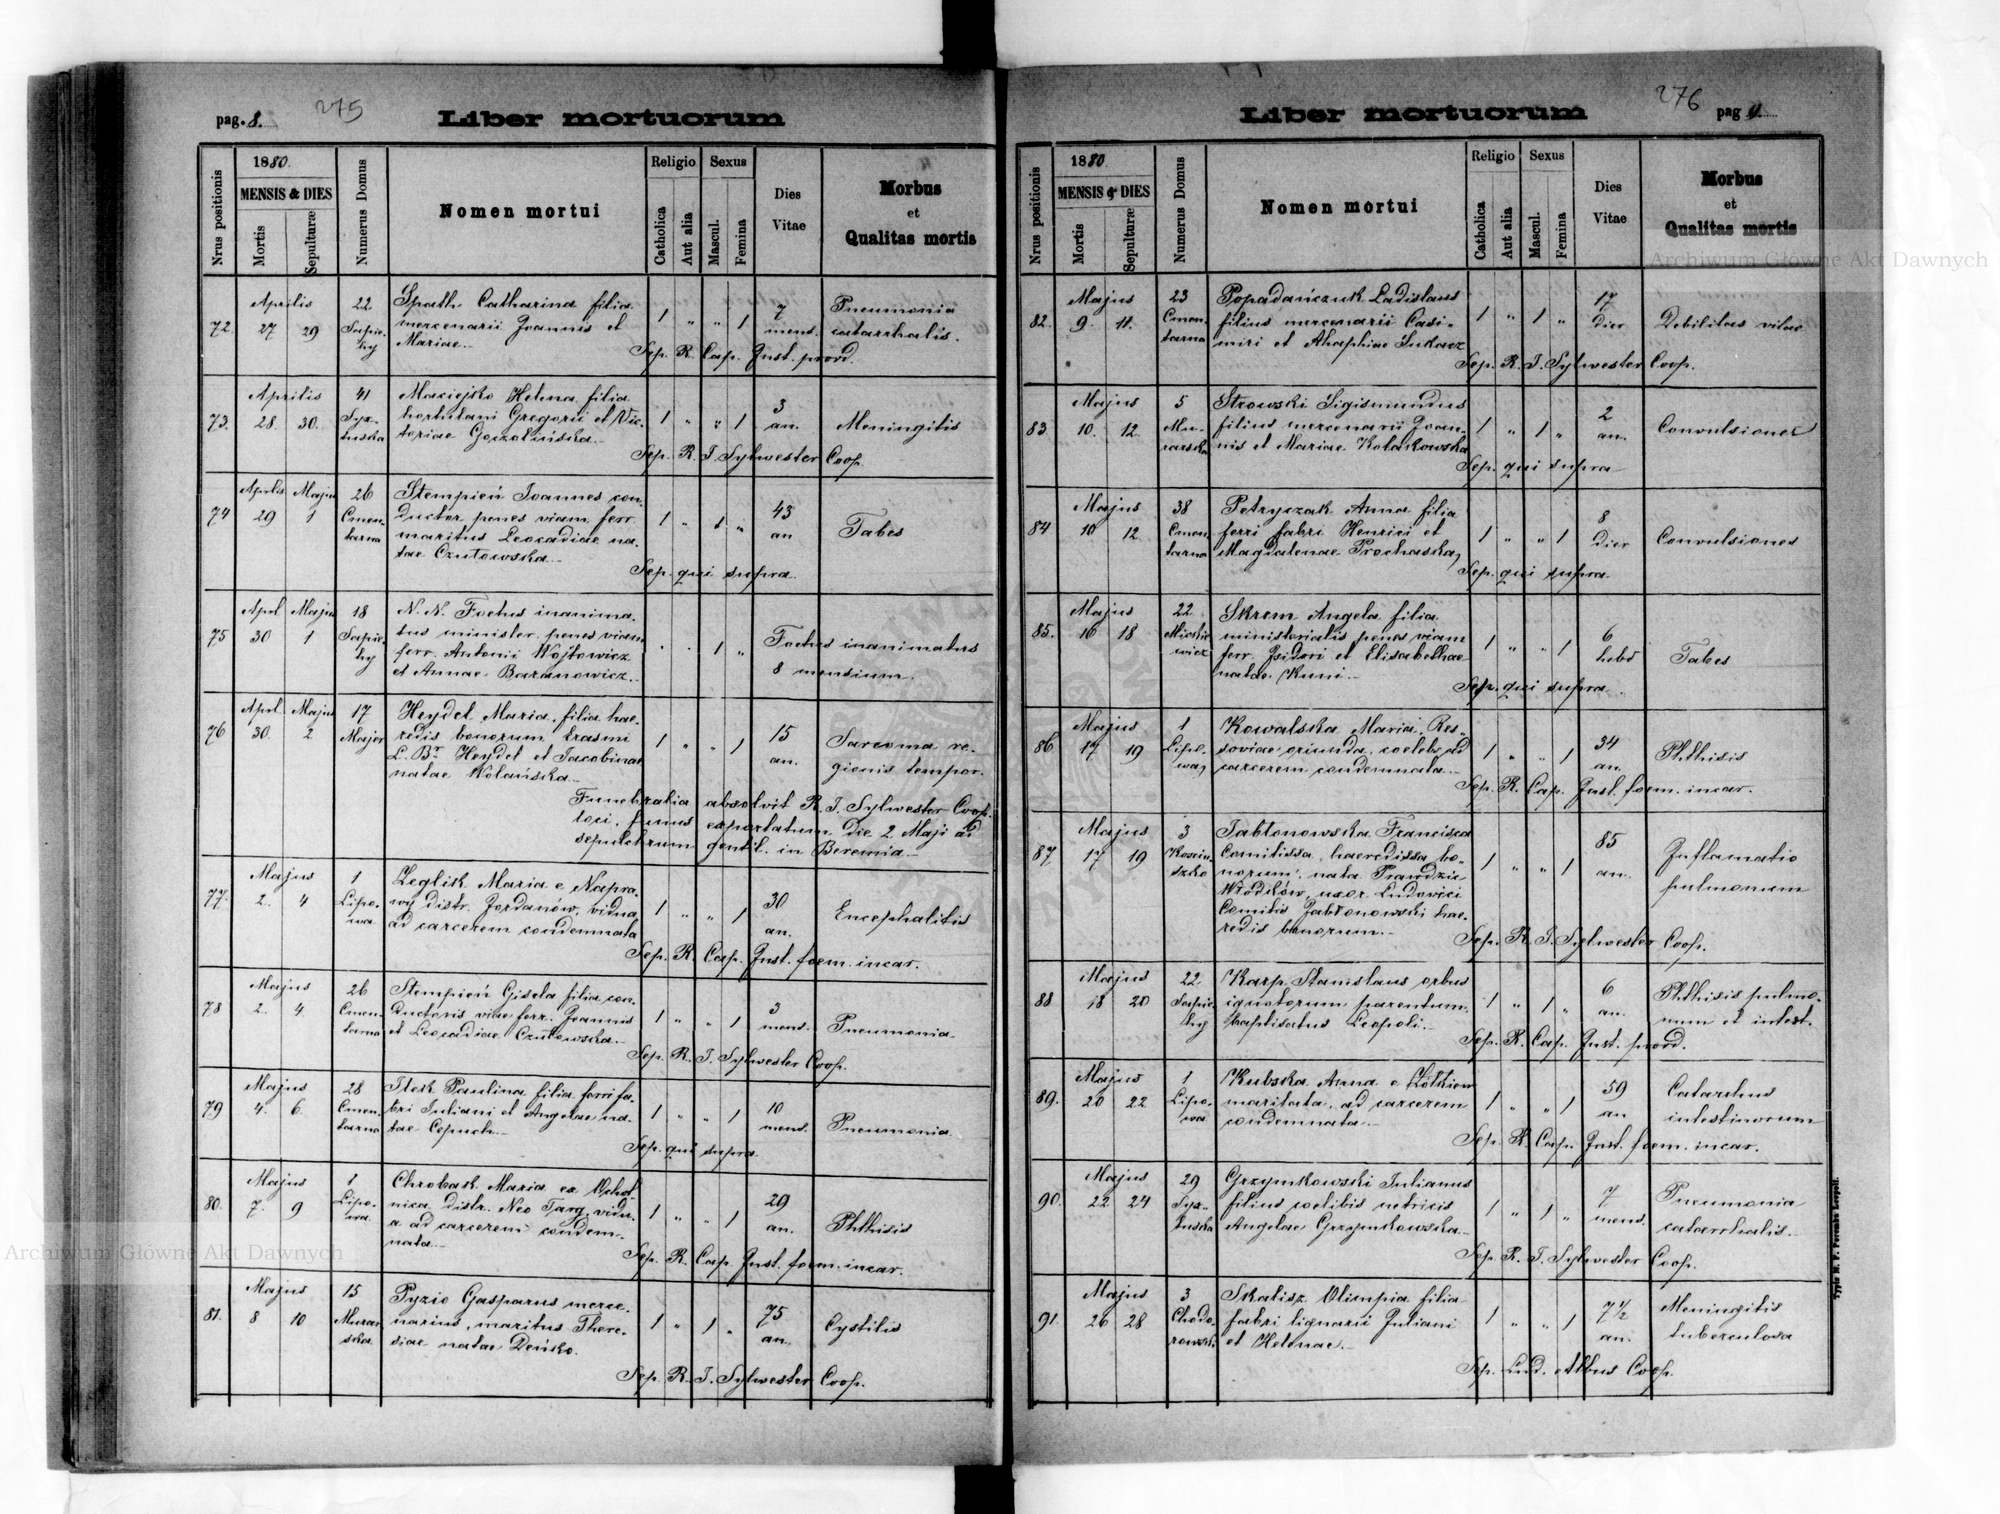 pag. 8.
275
Liber mortuorum
Nrus positionis
1880
MENSIS & DIES
Mortis
Sepulturæ
Numerus Domus
Nomen mortui
Religio
Catholica
Aut alia
Sexus
Mascul.
Femina
Dies
Vitae
Morbus
et
Qualitas mortis
72.
Aprilis
27 29
22
Sapie-
hy
Spath Catharina filia
mercenarii Joannis et
Mariae.
1 " " 1
7
mens.
Pneumonia
catarrhalis.
Sep. R. Cap. Inst. provd.
73.
Aprilis
28. 30.
41
Syx-
tuska
Maciejsko Helena filia
hortulani Gregorii et Vic-
toriae
1 " " 1
3
an.
Meningitis
Sep. R. T. Sylwester Coop.
74
Aprilis Majus
29 1
26
Cmen-
tarna
Stempień Joannes con-
ductor penes viam ferr.
maritus Leocadiae na-
tae Czutowska.
1 " 1 "
43
an
Tabes
Sep. qui supra
75
Apri Majus
30 1
18
Sapie-
hy
N. N. Foetus inanima-
tus minister. penes viam
ferr. Antonii Wojtowicz
et Annae Baranowicz.
" " 1 "
Foetus inanimatus
8 mensium.
76
Apri. Majus
30. 2
17
Major
Heydel Maria, filia hae-
redis bonorum Erasmi
L. Br. Heydel et Jacobinae
natae Wolańska
1 " " 1
15
an.
Sarcoma re-
gionis tempor.
Funebralia absolvit R. T. Sylwester Coop.
loci, funus exportatum die 2. Maji ad
sepulchrum gentil. in Beremia.
77.
Majus
2. 4
1
Lipo-
wa
Leglisk Maria e Napra-
wy distr. Jordanów, vidua,
ad carcerem condemnata
1 " " 1
30
an.
Encephalitis
Sep. R. Cap. Inst. foem. incar.
78
Majus
2. 4.
26
Cmen-
tarna
Stempień Gisela filia con-
ductoris viae ferr. Joannis
et Leocadiae Czutowska.
1 " " 1
3
mens.
Pneumonia
Sep. R. T. Sylwester Coop.
79
Majus
4. 6.
28
Cmen-
tarna
Paulina filia ferri fa-
bri Juliani et Angelae na-
tae Cepuch.
1 " " 1
10
mens.
Pneumonia
Sep. qui supra
80.
Majus
7. 9
1
Lipo-
wa
Chrobask Maria ex Ochot-
nica distr. Neo Targ, vidu-
a ad carcerem condem-
nata
1 " " 1
29
an.
Phthisis
Sep. R. Cap. Inst. foem. incar.
81.
Majus
8 10
15
Murar-
ska
Pyzio Gasparus merce-
narius, maritus There-
siae natae Deńsko.
1 " 1 "
75
an.
Cystitis
Sep. R. T. Sylwester Coop.
276
pag 9.
Liber mortuorum
Nrus positionis
1880
MENSIS & DIES
Mortis
Sepulturæ
Numerus Domus
Nomen mortui
Religio
Catholica
Aut alia
Sexus
Mascul.
Femina
Dies
Vitae
Morbus
et
Qualitas mortis
82.
Majus
9. 11.
23
Cmen-
tarna
Popadańczuk Ladislaus
filius mercenarii Casi-
miri et Ahaphiae Łukasz
1 " 1 "
17
dier
Debilitas vitae
Sep. R. T. Sylwester Coop.
83
Majus
10. 12.
5
Mu-
rarska
Strowski Sigismundus
filius mercenarii Joan-
nis et Mariae Kołakowska
1 " 1 "
2
an.
Convulsiones
Sep. qui supra
84
Majus
10 12
38
Cmen-
tarna
Petryczak Anna filia
ferri fabri Henrici et
Magdalenae Prochaska,
1 " " 1
8
dier
Convulsiones
Sep. qui supra
85.
Majus
16 18
22
Mickie-
wicz
Skrem Angela filia
ministerialis penes viam
ferr. Isidori et Elisabethae
natae Kuni.
1 " " 1
6
hebd
Tabes
Sep. qui supra
86
Majus
17 19
1
Lipo-
wa
Kowalska Maria, Res-
soviae oriunda, coelebs, ad
carcerem condemnata.
1 " " 1
34
an.
Phthisis
Sep. R. Cap. Inst. foem. incar.
87
Majus
17 19
3
Kosciu-
szko
Jabłonowska Francisca
Comitissa, haeredissa bo-
norum, nata Prawdzic
Włodków, uxor Ludovici
Comitis Jabłonowski hae-
redis bonorum.
1 " " 1
85
an.
Inflamatio
pulmonum
Sep. R. T. Sylwester Coop.
88
Majus
18 20
22
Sapie-
hy
Karp Stanislaus orbus
ignotorum parentum
baptisatus Leopoli.
1 " 1 "
6
an.
Phthisis pulmo-
num et intest.
Sep. R. Cap. Inst. provd.
89.
Majus
20 22
1
Lipo-
wa
Kubska Anna e Żółkiew
maritata, ad carcerem
condemnata.
1 " " 1
59
an
Catarrhus
intestinorum
Sep. R. Cap. Inst. foem. incar.
90.
Majus
22 24
29
Syx-
tuska
Grzymkowski Julianus
filius coelibis netricis
Angelae Grzymkowska.
1 " 1 "
7
mens.
Pneumonia
catarrhalis.
Sep. R. T. Sylwester Coop.
91.
Majus
26 28
3
Chodo-
rowski
Skalisz Olimpia filia
fabri lignarii Juliani
et Helenae.
1 " " 1
7 1/2
an.
Meningitis
tuberculosa
Sep. Lud. Albus Coop.
Archiwum Główne Akt Dawnych
Archiwum Główne Akt Dawnych